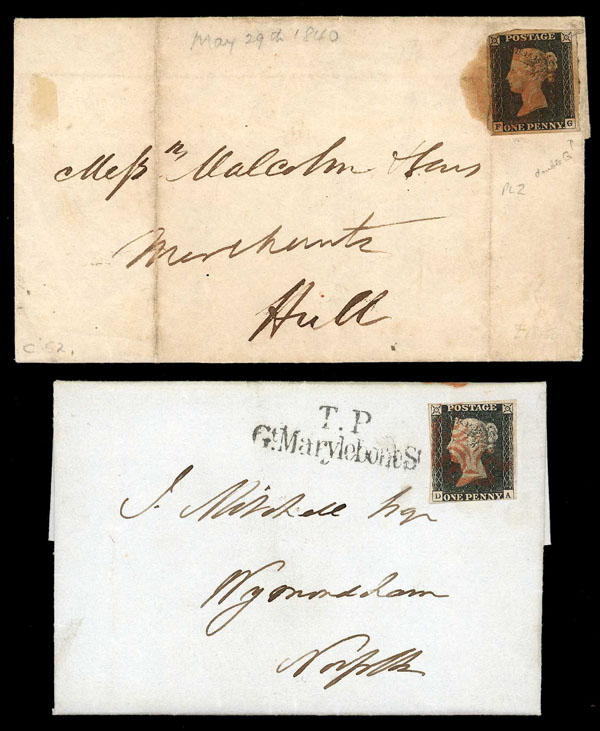 May 29th 1840
POSTAGE
F ONE PENNY G
Messrs Malcolm & Sons
double G
PL 2
Merchants
Hull
C'52.
T.P
Gt Marylebone St
POSTAGE
D ONE PENNY A
J. Mitchell Esqr
Wymondham
Norfolk